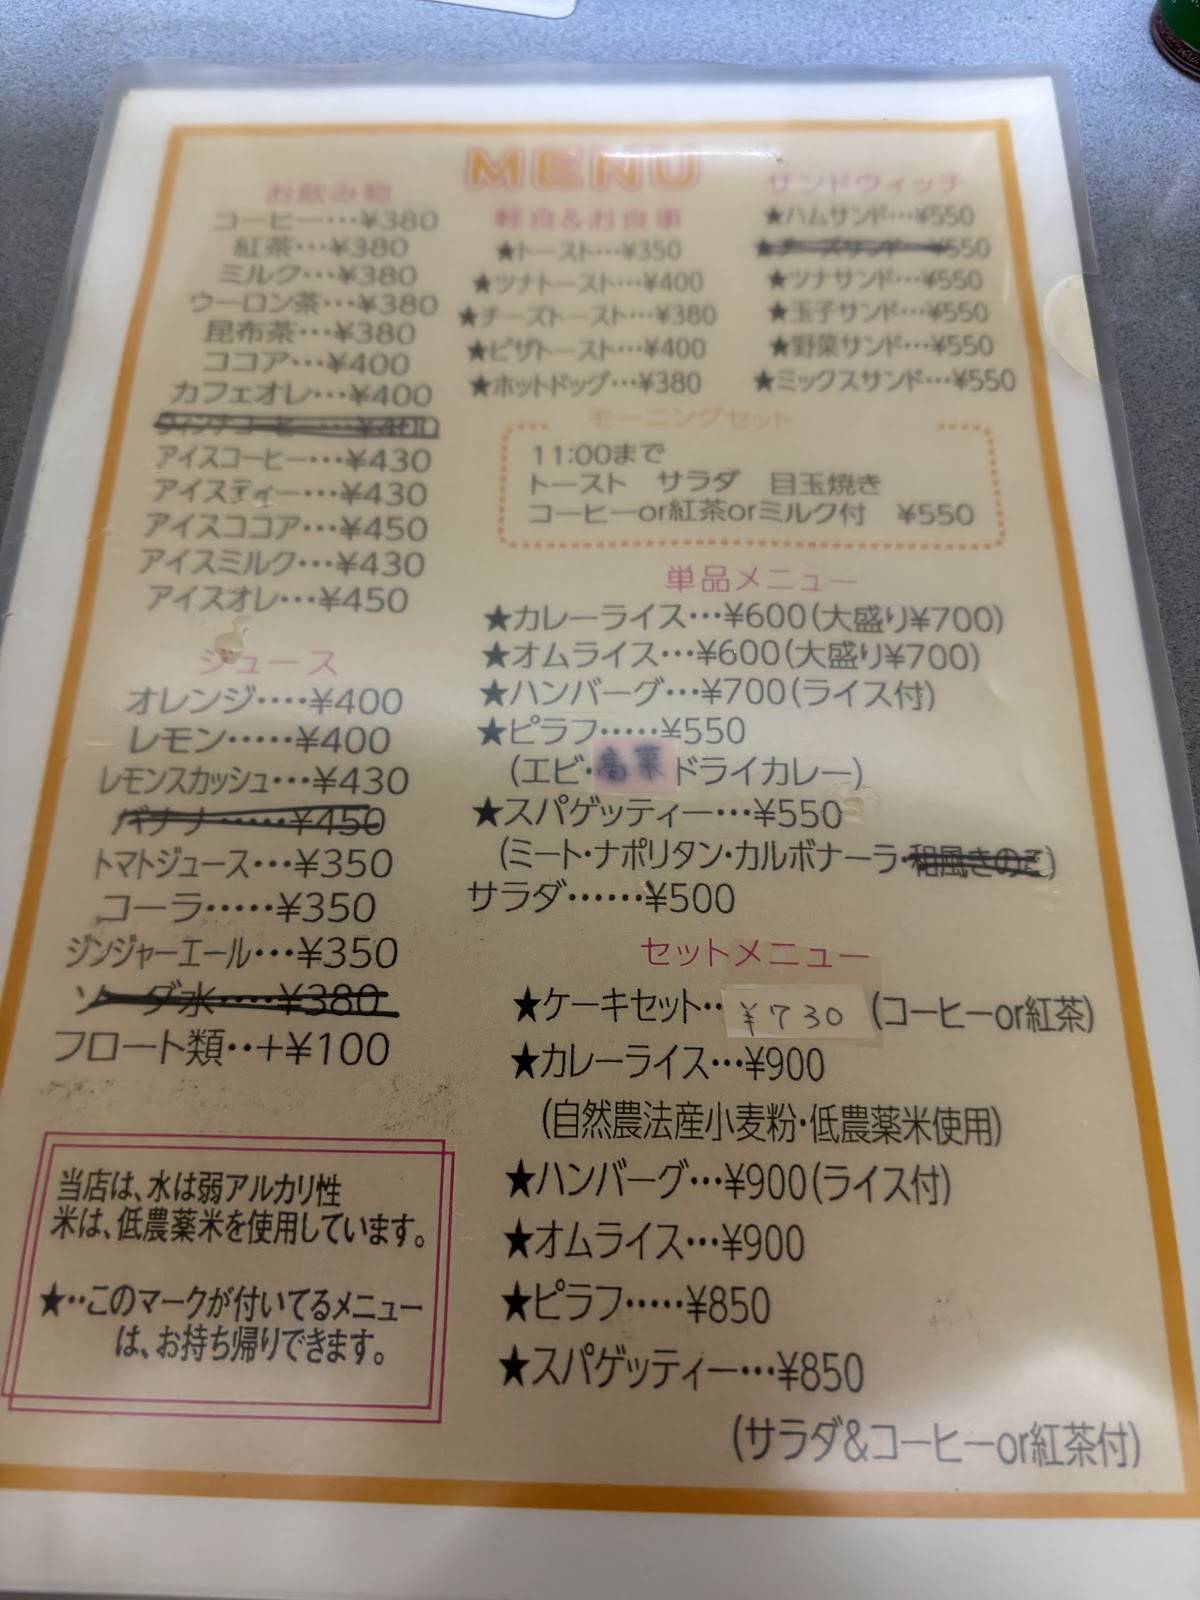 MENU
お飲み物
コーヒー…¥380
紅茶…¥380
ミルク…¥380
ウーロン茶…¥380
昆布茶…¥380
ココア…¥400
カフェオレ…¥400
ウィンナコーヒー…¥400
アイスコーヒー…¥430
アイスティー…¥430
アイスココア…¥450
アイスミルク…¥430
アイスオレ…¥450
ジュース
オレンジ‥‥¥400
レモン‥‥‥¥400
レモンスカッシュ…¥430
バナナ‥‥‥¥450
トマトジュース…¥350
コーラ‥‥‥¥350
ジンジャーエール…¥350
ソーダ水‥‥¥380
フロート類‥+¥100
当店は、水は弱アルカリ性
米は、低農薬米を使用しています。
★‥このマークが付いてるメニュー
は、お持ち帰りできます。
軽食&お食事
★トースト…¥350
★ツナトースト…¥400
★チーズトースト…¥380
★ピザトースト…¥400
★ホットドッグ…¥380
サンドウィッチ
★ハムサンド…¥550
★チーズサンド…¥550
★ツナサンド…¥550
★玉子サンド…¥550
★野菜サンド…¥550
★ミックスサンド…¥550
モーニングセット
11:00まで
トースト　サラダ　目玉焼き
コーヒーor紅茶orミルク付　¥550
単品メニュー
★カレーライス…¥600(大盛り¥700)
★オムライス…¥600(大盛り¥700)
★ハンバーグ…¥700(ライス付)
★ピラフ‥‥‥¥550
(エビ・高菜ドライカレー)
★スパゲッティー…¥550
(ミート・ナポリタン・カルボナーラ・和風きのこ)
サラダ‥‥‥¥500
セットメニュー
★ケーキセット‥¥730(コーヒーor紅茶)
★カレーライス…¥900
(自然農法産小麦粉・低農薬米使用)
★ハンバーグ…¥900(ライス付)
★オムライス…¥900
★ピラフ‥‥‥¥850
★スパゲッティー…¥850
(サラダ&コーヒーor紅茶付)